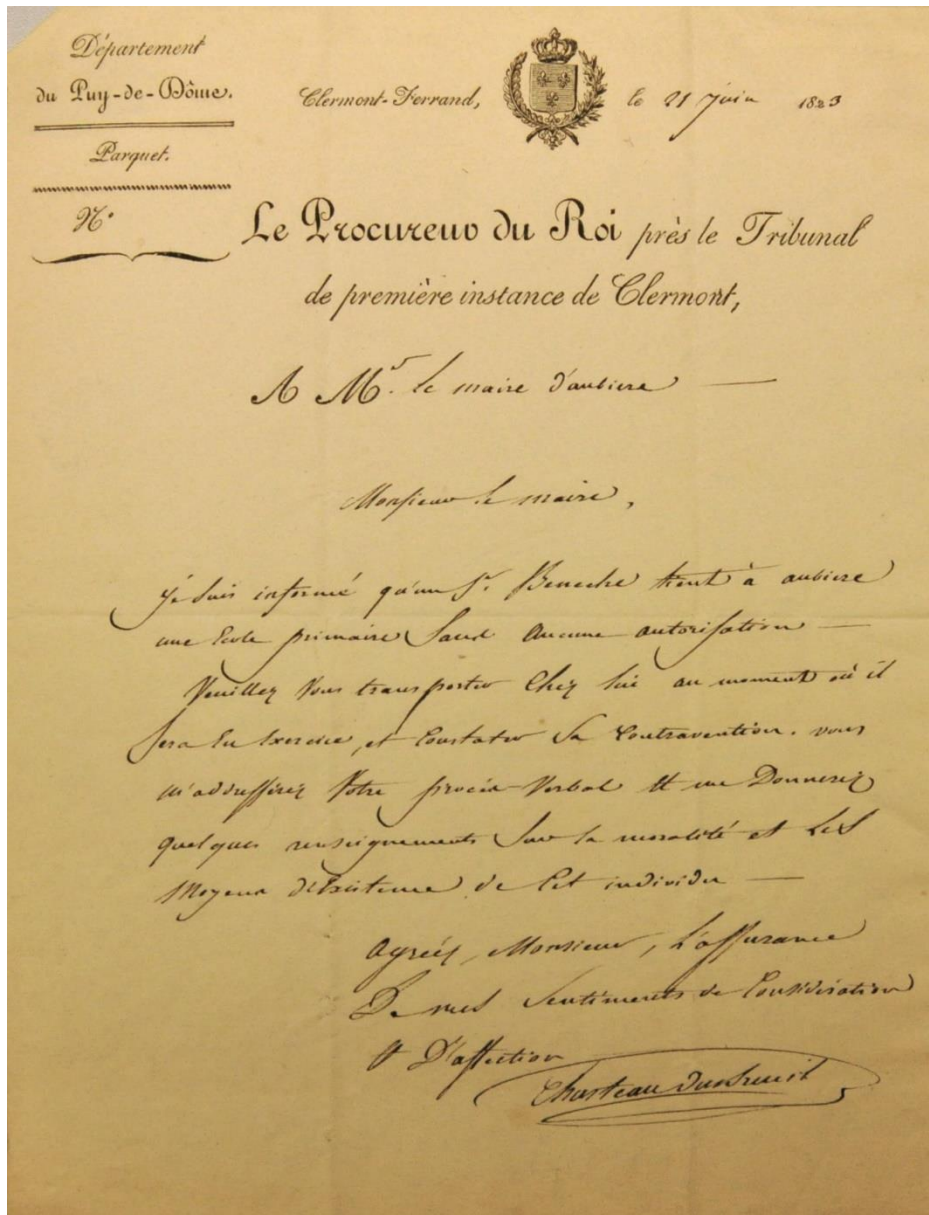 Département
du Puy-de-Dôme.
Parquet.
N°
Clermont-Ferrand, le 21 juin 1823
Le Procureur du Roi près le Tribunal
de première instance de Clermont,
A Mr. le maire d'aubiere
Monsieur le maire,
je suis informé qu'un Sr. Beneche tient à aubiere
une Ecole primaire Sans Aucune autorisation
Veuillez Vous transporter Chez lui au moment où il
Sera En Exercice, et Constater Sa Contravention. vous
m'addresserez Votre procès-Verbal Et me Donnerez
quelques renseignements Sur la moralité et Les
Moyens d'Existence de Cet individu
agréez, Monsieur, L'assurance
De mes Sentiments de Considération
Et D'affection